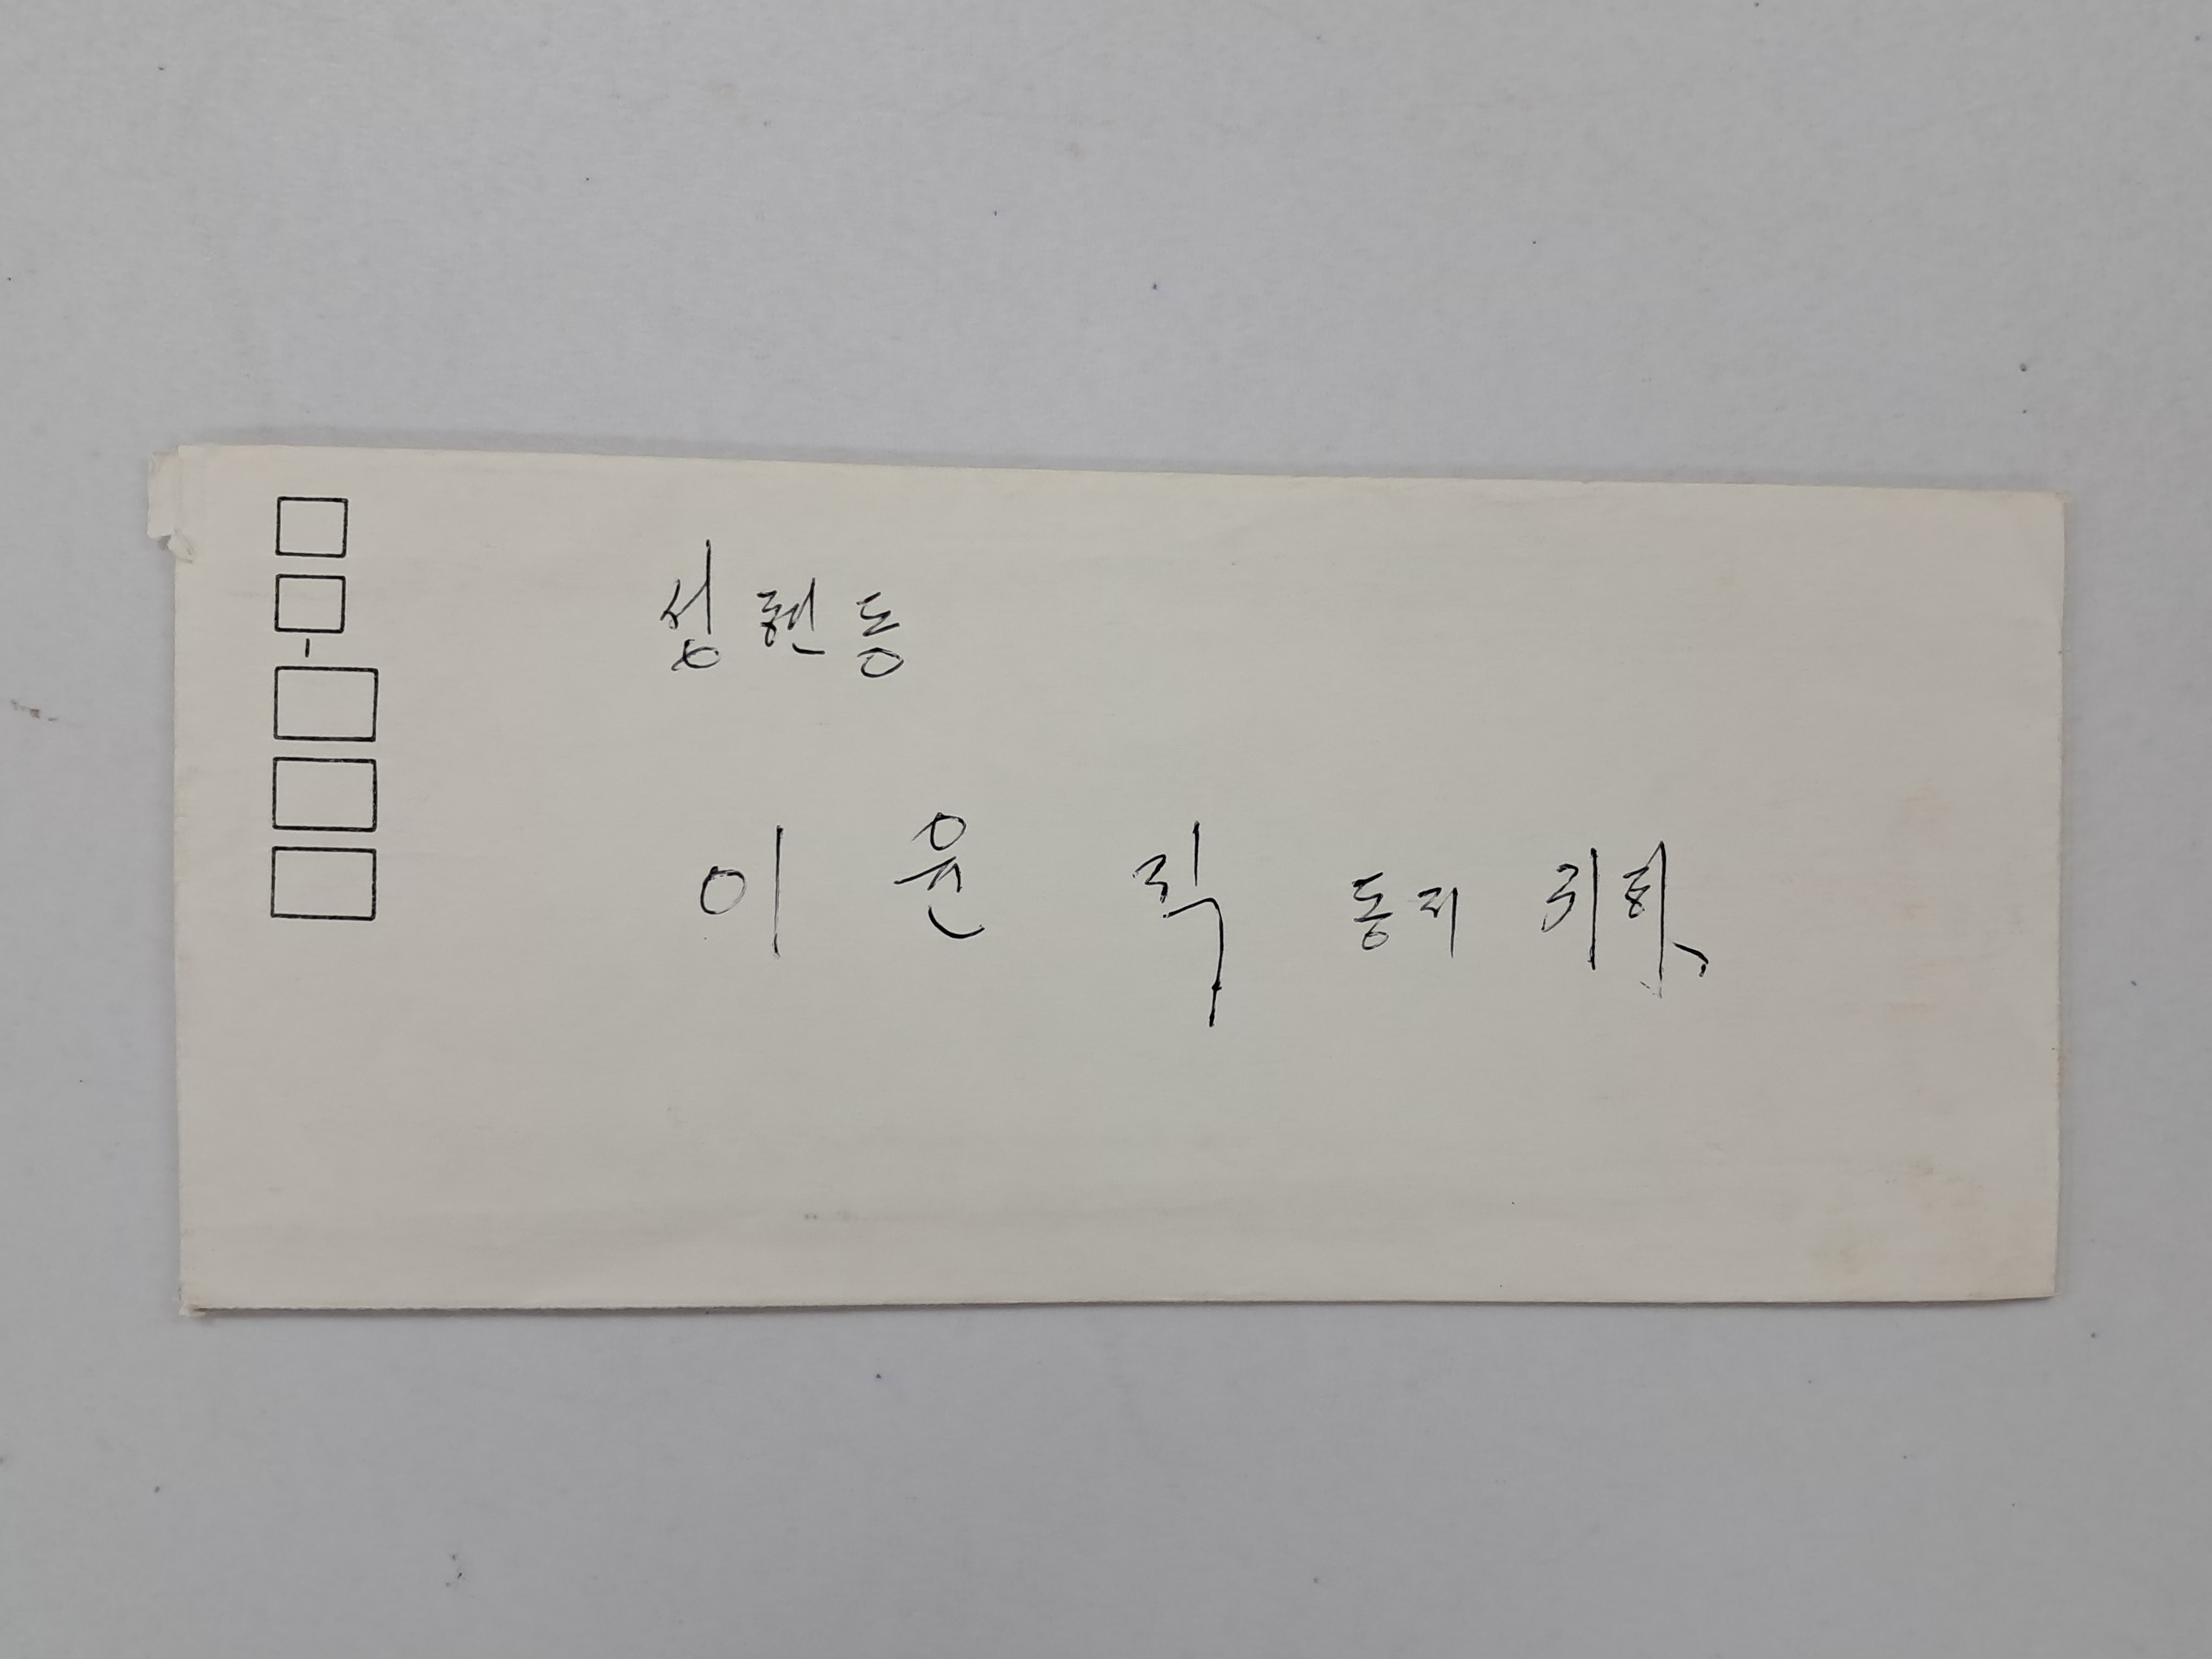 성현동
이 윤 직 동지 귀하